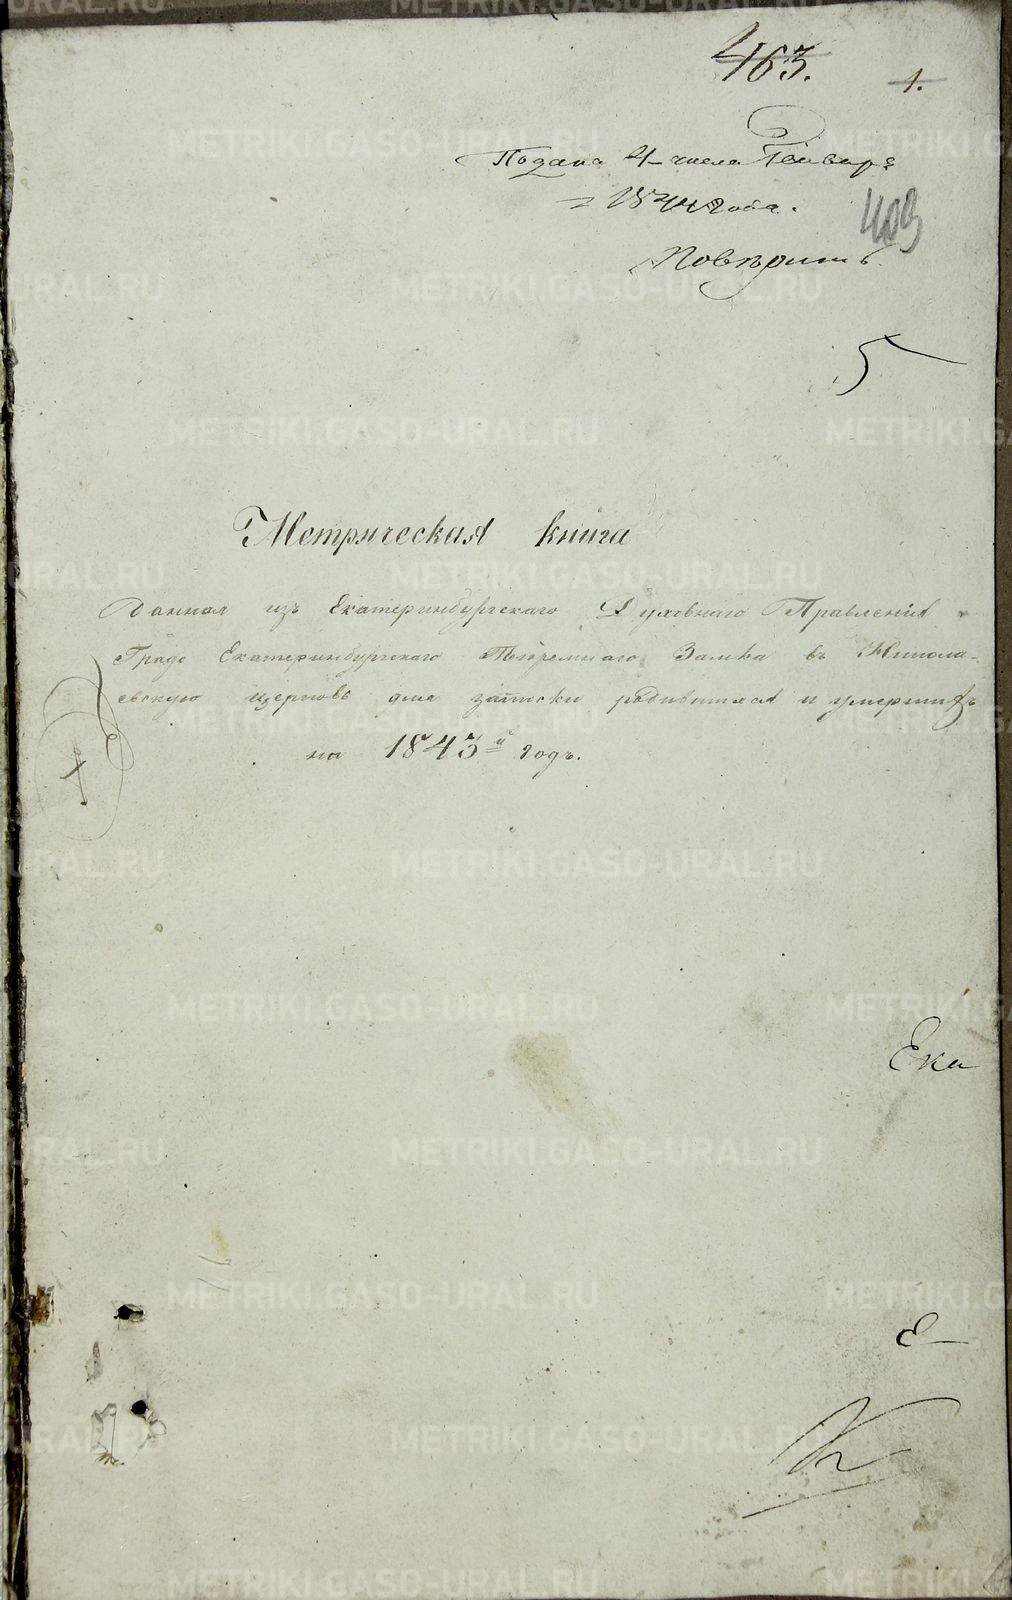 463.
1.
Подана 4 числа Генваря
1844 года.
403
Повѣрить
5
Метрическая книга
Данная изъ Екатеринбургскаго Духовнаго Правленія
Градо Екатеринбургскаго Тюремнаго Замка въ Никола-
евскую церковь для записки родившихся и умершихъ
на 1843й годъ.
Ека
Е
К
METRIKI.GASO-URAL.RU